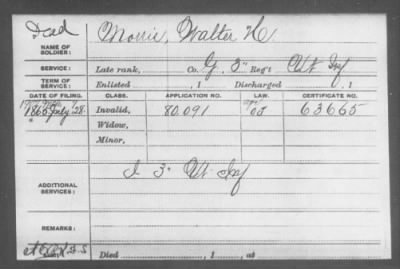 Dead
NAME OF SOLDIER: Morris, Walter H.
SERVICE: Late rank, Co. G, 3" Reg't Vt Inf
TERM OF SERVICE: Enlisted , 1 Discharged , 1
DATE OF FILING. CLASS. APPLICATION NO. LAW. CERTIFICATE NO.
1865 July 28. Invalid, 80.091 63665
Widow,
Minor,
ADDITIONAL SERVICES: I 3" Vt Inf
REMARKS:
Died , 1 , at